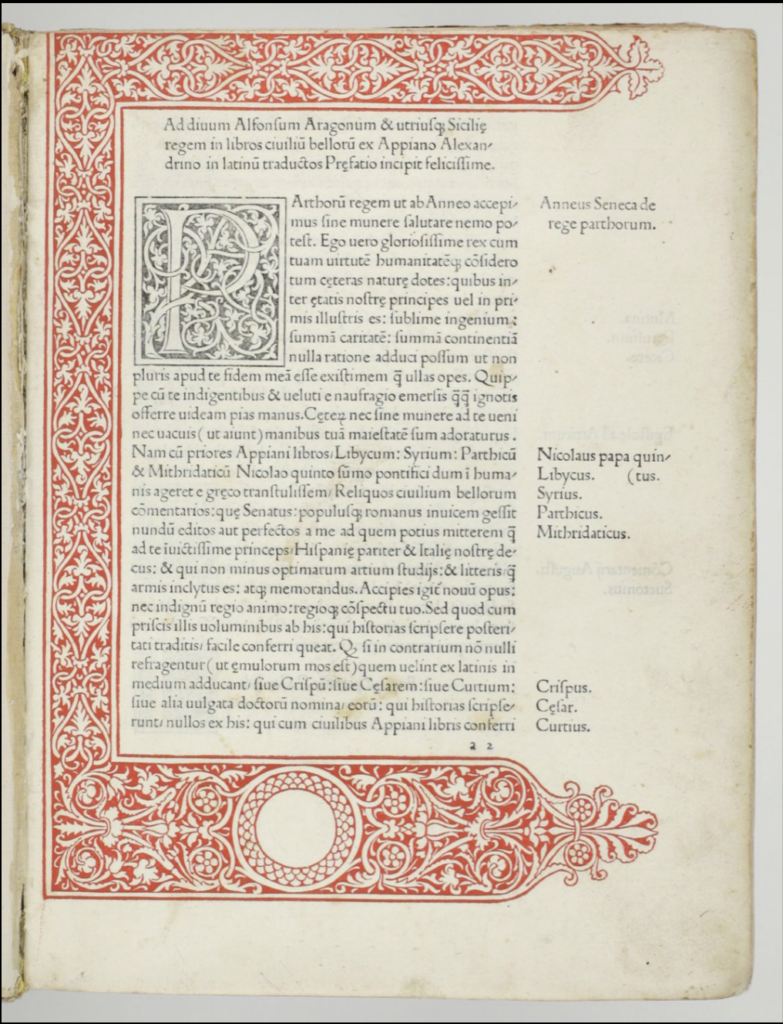 Ad diuum Alfonſum Aragonum & utriuſq; Sicilię
regem in libros ciuiliū bellorū ex Appiano Alexan⸗
drino in latinū traductos Pręfatio incipit feliciſſime.
PArthorū regem ut ab Anneo accepi⸗
mus ſine munere ſalutare nemo po⸗
teſt. Ego uero glorioſiſſime rex cum
tuam uirtutē humanitatēq; cōſidero
tum cęteras naturę dotes: quibus in⸗
ter ętatis noſtrę principes uel in pri⸗
mis illuſtris es: ſublime ingenium:
ſummā caritatē: ſummā continentiā
nulla ratione adduci poſſum ut non
pluris apud te fidem meā eſſe exiſtimem q̄ ullas opes. Quip⸗
pe cū te indigentibus & ueluti e naufragio emerſis q̄q̄ ignotis
offerre uideam pias manus. Cęteꝝ nec ſine munere ad te ueni
nec uacuis (ut aiunt) manibus tuā maieſtatē ſum adoraturus.
Nam cū priores Appiani libros/ Libycum: Syrium: Parthicū
& Mithridaticū Nicolao quinto ſūmo pontifici dum ī huma⸗
nis ageret e gręco tranſtuliſſem/ Reliquos ciuilium bellorum
cōmentarios: quę Senatus: populuſq; romanus inuicem geſſit
nundū editos aut perfectos a me ad quem potius mitterem q̄
ad te īuictiſſime princeps/ Hiſpanię pariter & Italię noſtrę de⸗
cus: & qui non minus optimarum artium ſtudijs: & litteris q̄
armis inclytus es: atq; memorandus. Accipies igit̄ nouū opus:
nec indignū regio animo: regioq; cōſpectu tuo. Sed quod cum
priſcis illis uoluminibus ab his: qui hiſtorias ſcripſere poſteri⸗
tati traditis/ facile conferri queat. Q, ſi in contrarium nō nulli
refragentur (ut ęmulorum mos eſt) quem uelint ex latinis in
medium adducant/ ſiue Criſpū: ſiue Cęſarem: ſiue Curtium:
ſiue alia uulgata doctorū nomina/ eorū: qui hiſtorias ſcripſe⸗
runt/ nullos ex his: qui cum ciuilibus Appiani libris conferri
a 2
Anneus Seneca de
rege parthorum.
Nicolaus papa quin⸗
Libycus. (tus.
Syrius.
Parthicus.
Mithridaticus.
Criſpus.
Cęſar.
Curtius.